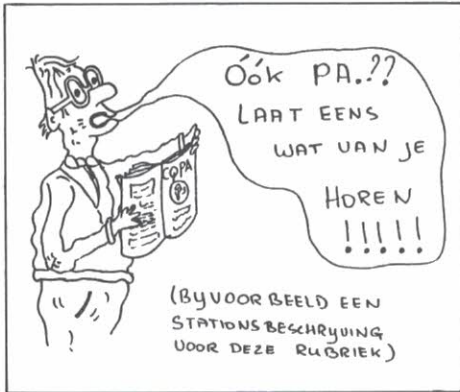 ÓÓK PA.??
LAAT EENS
WAT VAN JE
HOREN
!!!!!
CQPA
(BYVOORBEELD EEN
STATIONSBESCHRYVING
VOOR DEZE RUBRIEK)